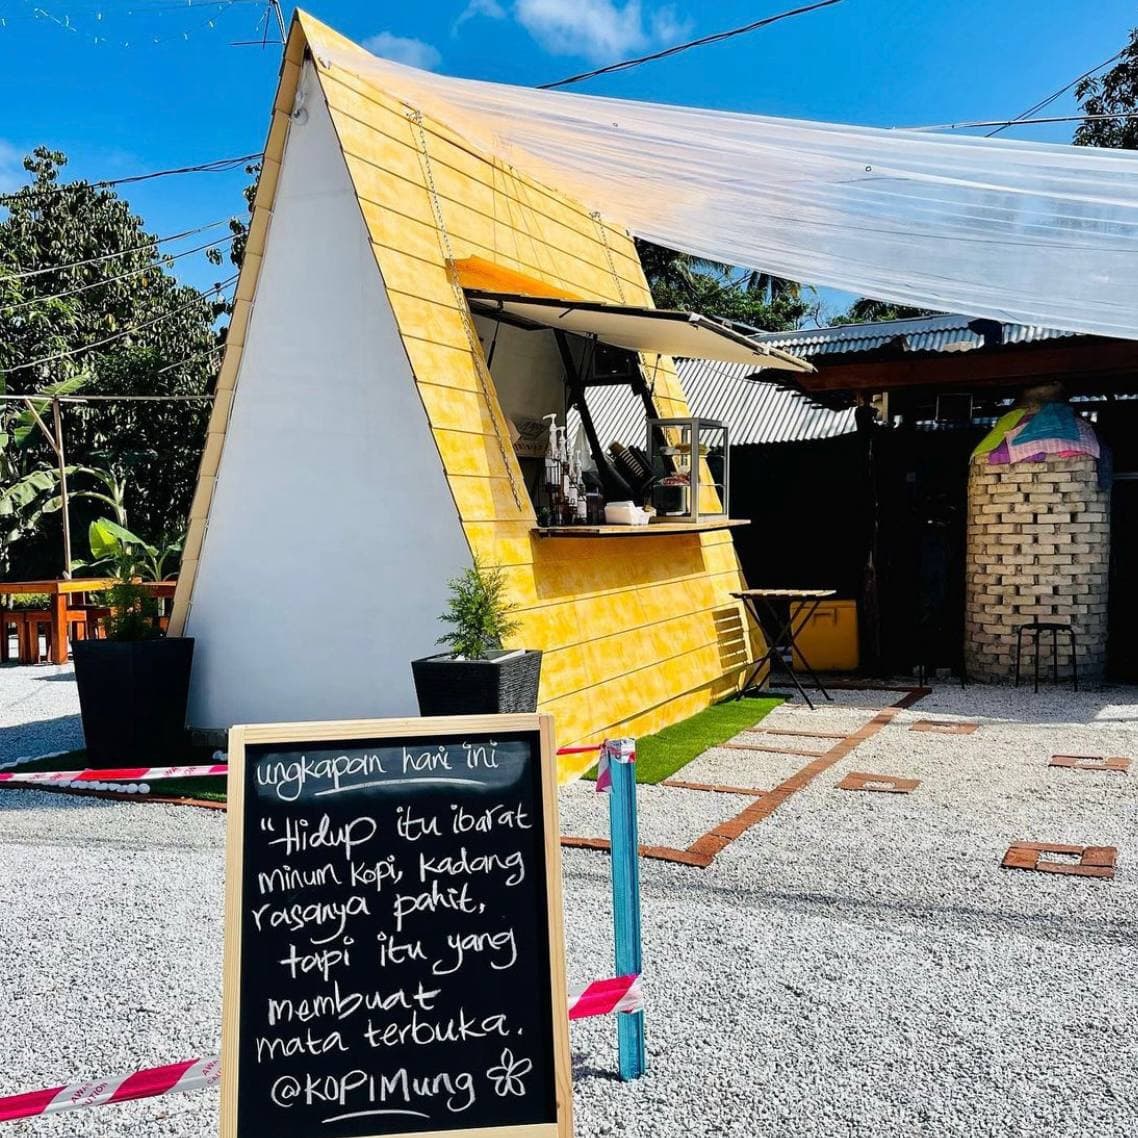 ungkapan hari ini
"Hidup itu ibarat
minum kopi, kadang
rasanya pahit,
tapi itu yang
membuat
mata terbuka.
@KOPIMung